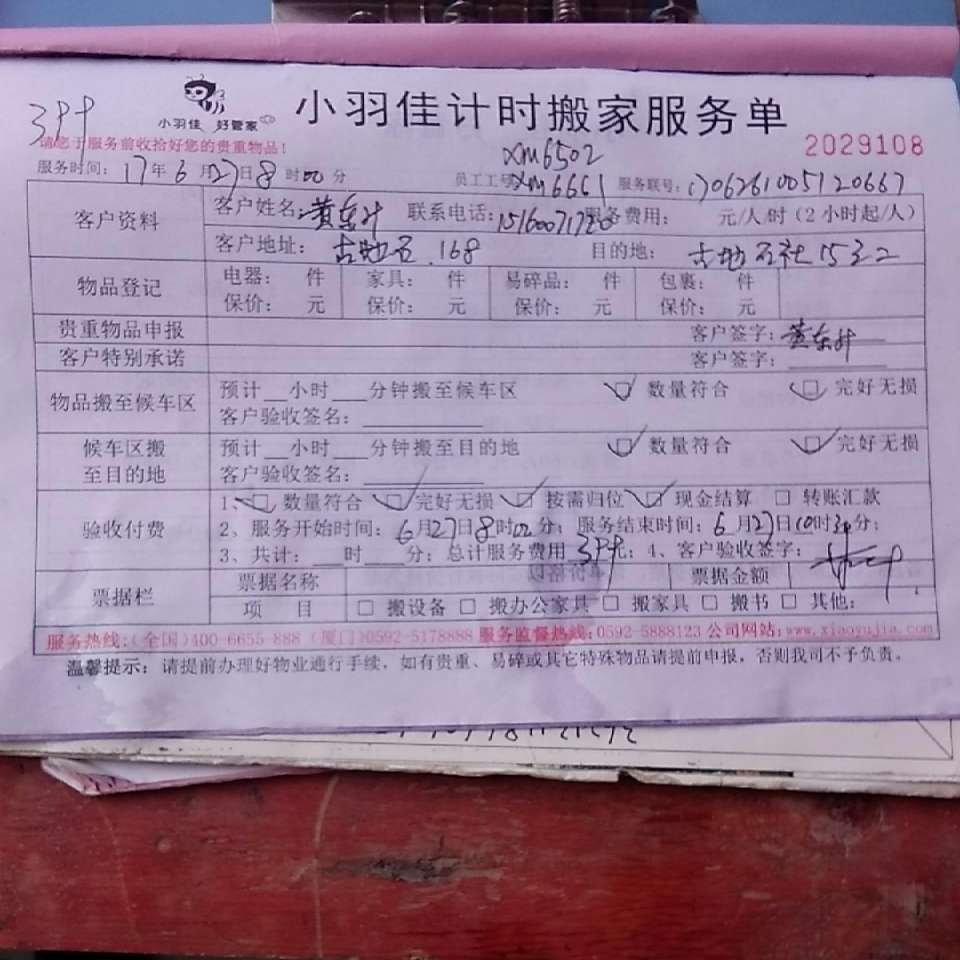 小羽佳 好管家
小羽佳计时搬家服务单
请您于服务前收拾好您的贵重物品！
2029108
XM6502
服务时间：17年6月27日8时00分 员工工号：XM6661 服务联号：1706261005120667
客户资料
客户姓名：黄东升 联系电话： 服务费用： 元/人/时（2小时起/人）
客户地址：古地石.168 目的地：古地石社15号2
物品登记
电器： 件 家具： 件 易碎品： 件 包裹： 件
保价： 元 保价： 元 保价： 元 保价： 元
贵重物品申报 客户签字：黄东升
客户特别承诺 客户签字：
物品搬至候车区
预计__小时___分钟搬至候车区 数量符合 完好无损
客户验收签名：
候车区搬至目的地
预计__小时___分钟搬至目的地 数量符合 完好无损
客户验收签名：
验收付费
1、数量符合 完好无损 按需归位 现金结算 转账汇款
2、服务开始时间：6月27日8时00分；服务结束时间：6月27日10时30分；
3、共计：__时__分；总计服务费用 元；4、客户验收签字：
票据栏
票据名称 票据金额
项 目 搬设备 搬办公家具 搬家具 搬书 其他：
服务热线：（全国）400-6655-888（厦门）0592-5178888 服务监督热线：0592-5888123 公司网站：www.xiaoyujia.com
温馨提示：请提前办理好物业通行手续，如有贵重、易碎或其它特殊物品请提前申报，否则我司不予负责。